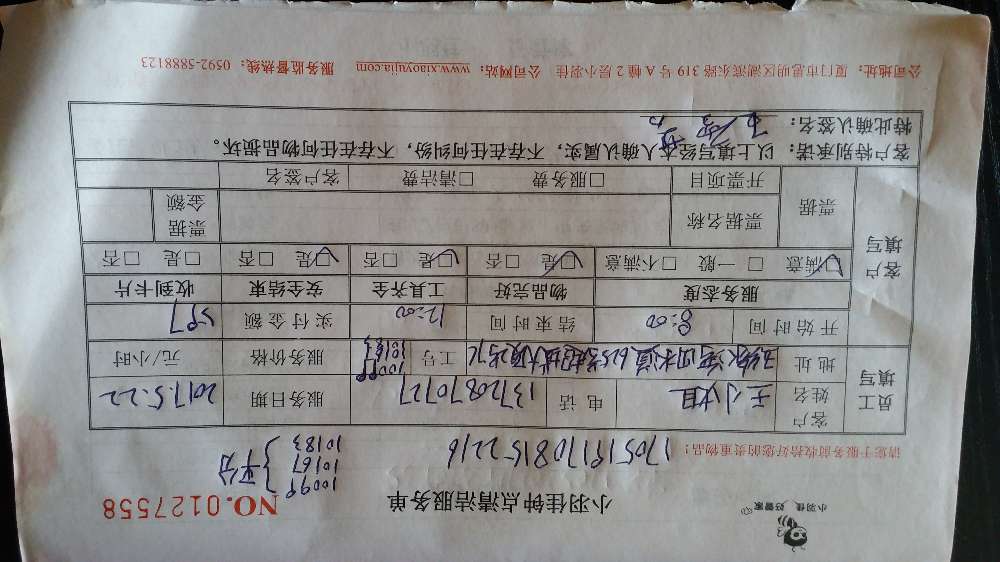 小羽佳 好管家
小羽佳钟点清洁服务单
NO.0127558
10099
10167
10183
平分
请您于服务前收拾好您的贵重物品!
1705191708152216
员工填写
客户姓名 王小姐 电话 13720870727 服务日期 2017.5.22
地址 工号 10099 10167 10183 服务价格 元/小时
开始时间 8:00 结束时间 12:00 实付金额 597
客户填写
服务态度 物品完好 工具齐全 安全结束 收到卡片
☑满意 □一般 □不满意 ☑是 □否 ☑是 □否 ☑是 □否 □是 □否
票据 票据名称 票据金额
开票项目 □服务费 □清洁费 客户签名
客户特别承诺:以上填写经本人确认属实,不存在任何纠纷,不存在任何物品损坏。
特此确认签名:
公司地址:厦门市思明区湖滨东路319号A幢2层小羽佳 公司网站:www.xiaoyujia.com 服务监督热线:0592-5888123